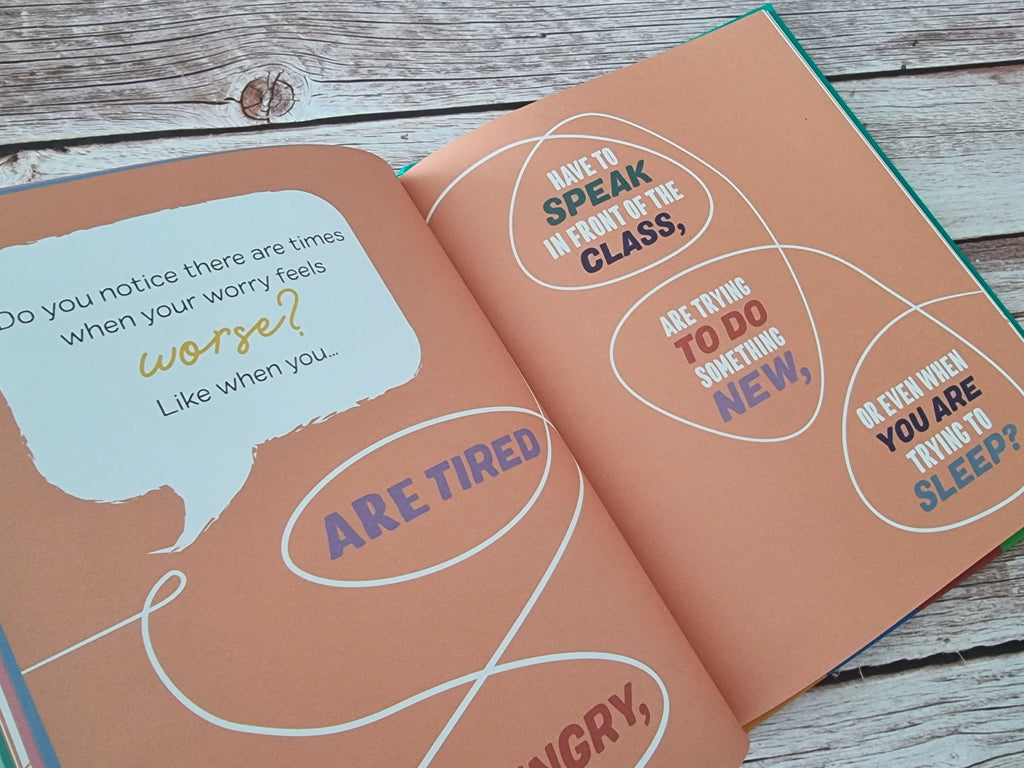 Do you notice there are times
when your worry feels
worse?
Like when you...
ARE TIRED
HAVE TO
SPEAK
IN FRONT OF THE
CLASS,
ARE TRYING
TO DO
SOMETHING
NEW,
OR EVEN WHEN
YOU ARE
TRYING TO
SLEEP?